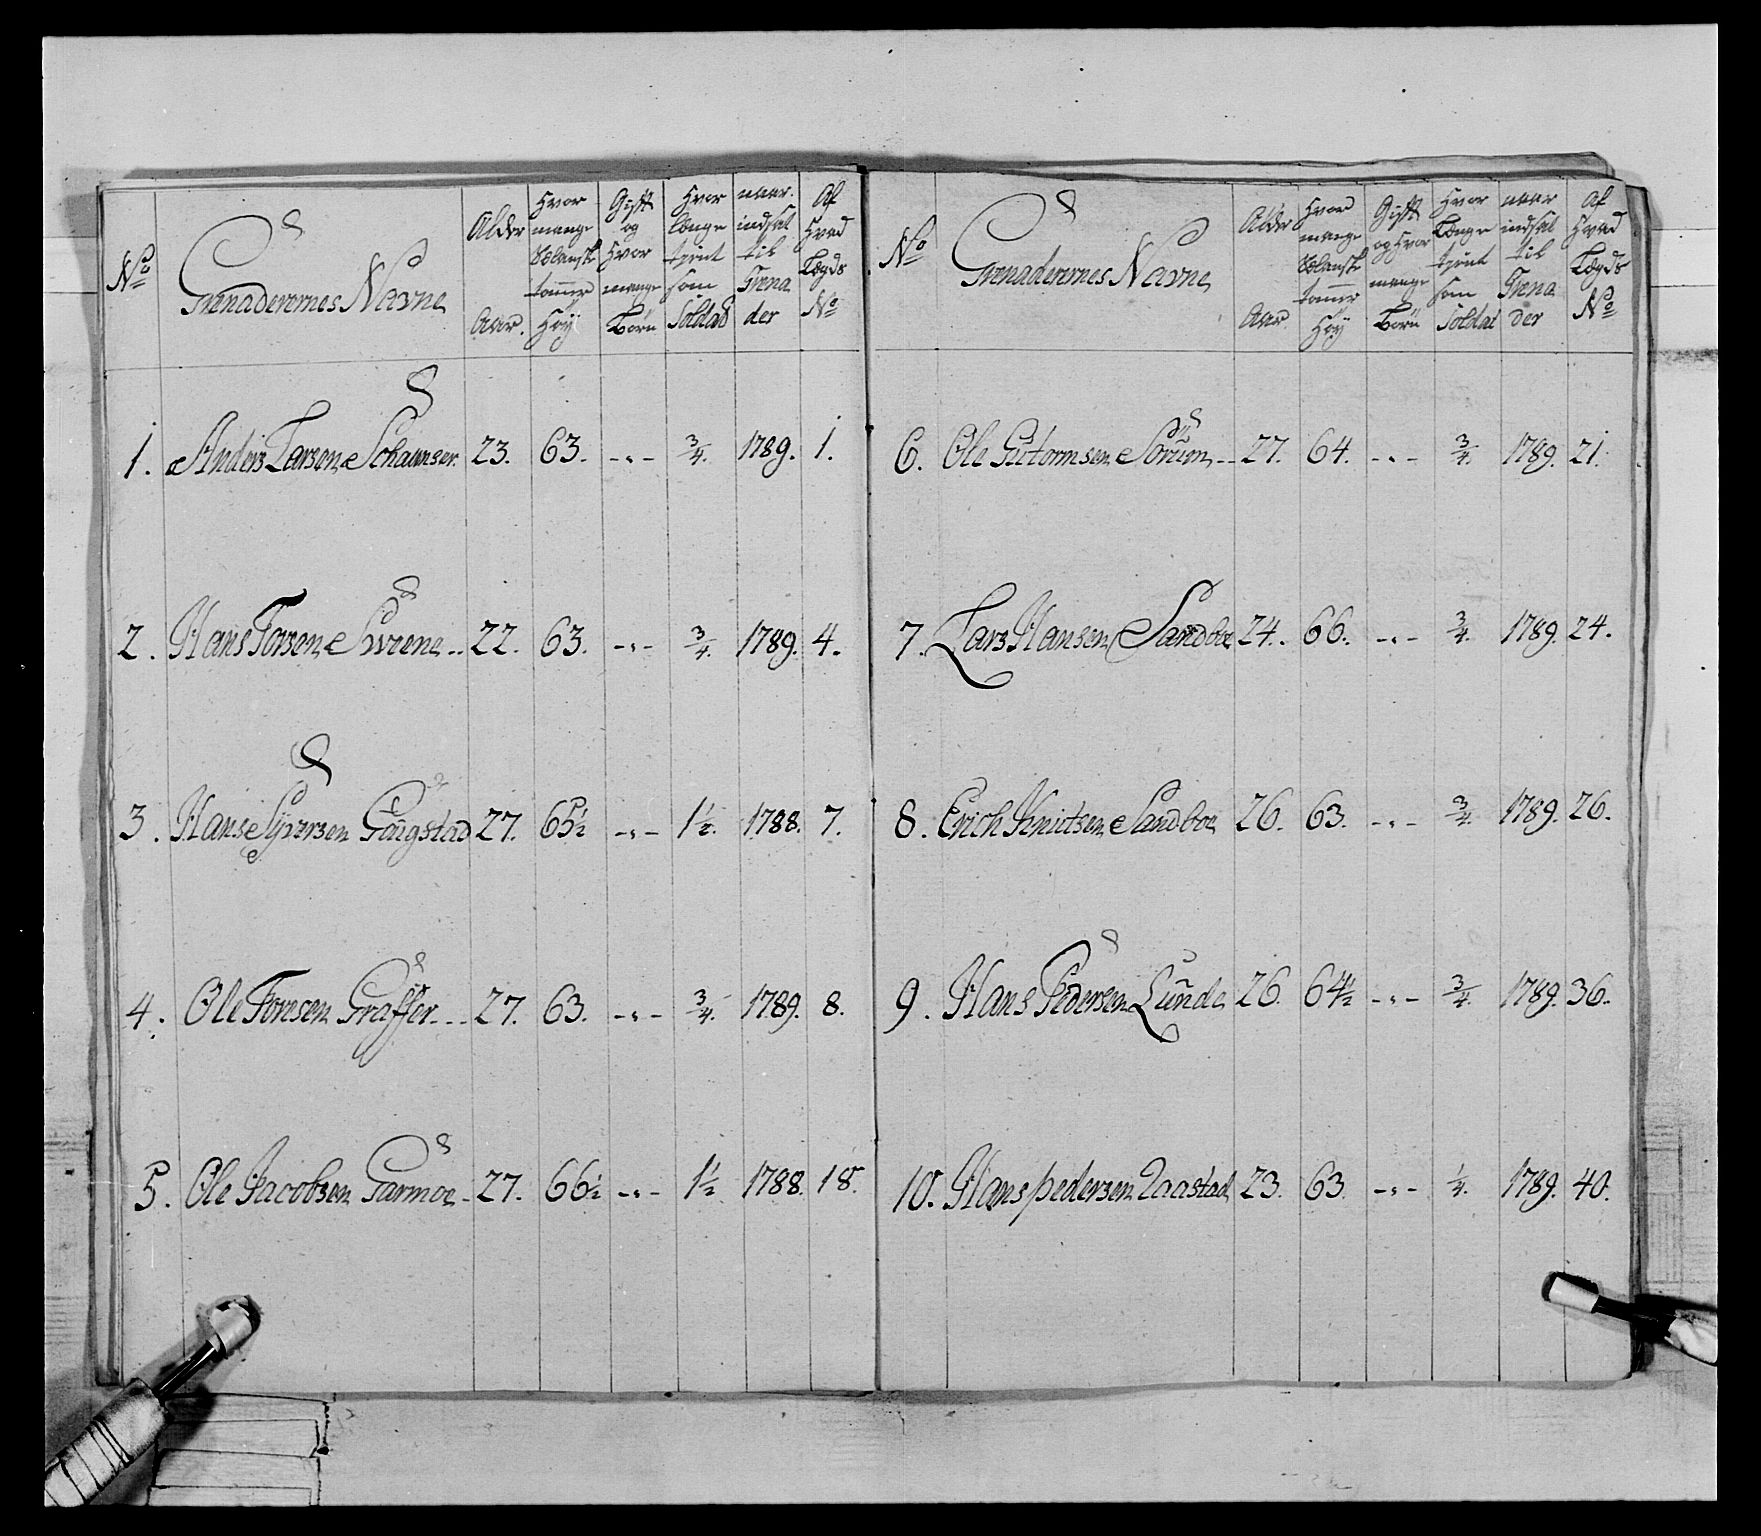 No
Grenaderernes Navne
Alder
Aar.
Hvor
mange
tomer
Høÿ
Gift
og
Hvor
mange
Børn
Hvor
Længe
tient
som
Soldad
naar
indsat
til
Grena
der
Af
Hvad
Lægds
No
1. Anders Larsen 23. 63. -„- 3/4. 1789. 1.
2. Hans Torsen 22. 63. -„- 3/4. 1789. 4.
3. Hans Syversen Gaugstad 27. 65½ -„- 1½. 1788. 7.
4. Ole Foresen Graffer 27. 63. -„- 3/4. 1789. 8.
5. Ole Jacobsen Garmoe 27. 66½ -„- 1½ 1788. 18.
No
Grenaderernes Navne
Alder
Aar
Hvor
mange
tomer
Høÿ
Gift
og Hvor
mange
Børn
Hvor
Længe
tient
som
Soldat
naar
indsat
til
Grena
der
Af
Hvad
Lægds
No
6. Ole Gutormsen Sörum 27. 64. -„- 3/4. 1789. 21.
7. Lars Hansen Sandboe 24. 66. -„- 3/4. 1789. 24.
8. Erich Knutsen Sandboe 26. 63. -„- 3/4. 1789. 26.
9. Hans Pedersen Lunde 26. 64½ -„- 3/4. 1789. 36.
10. Hans pedersen 23. 63 -„- 1/4. 1789. 40.